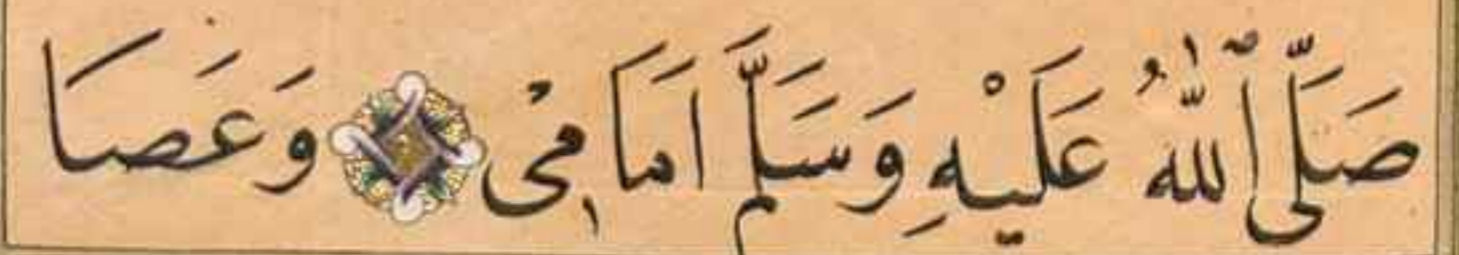 صَلَّى ٱللّٰهُ عَلَيْهِ وَسَلَّمَ اَمَامِىْ وَعَصَا